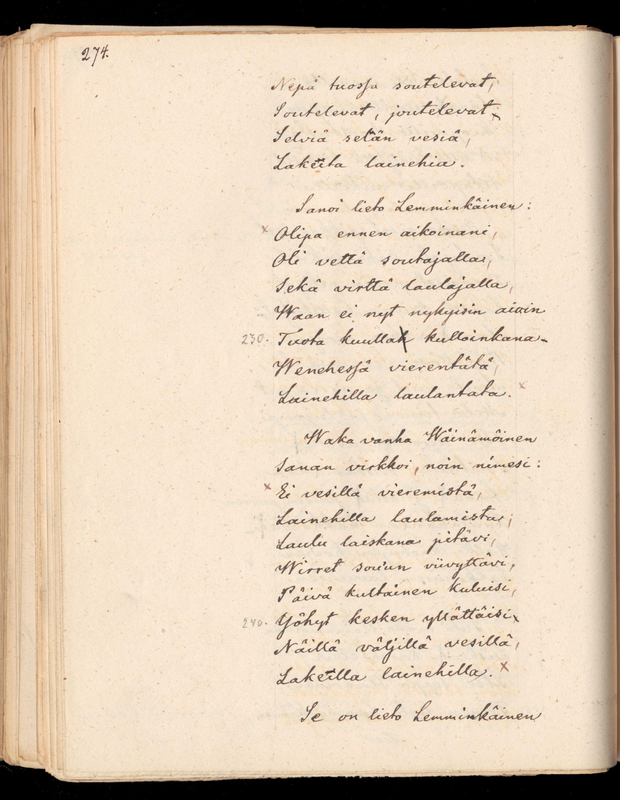 274.
Nepä tuossa soutelevat,
Soutelevat, joutelevat
Selviä selän vesiä,
Lakeita lainehia.
Sanoi lieto Lemminkäinen:
Olipa ennen aikoinani,
Oli vettä soutajalla,
Sekä virttä laulajalla,
Waan ei nyt nykyisin aioin
230. Tuota kuullak kulloinkana
Wenehessä vierentätä,
Lainehilla laulantata.
Waka vanha Wäinämöinen
Sanan virkkoi, noin nimesi:
Ei vesillä vieremistä,
Lainehilla laulamista;
Laulu laiskana pitävi,
Wirret sou'un viivyttävi,
Päivä kultainen kuluisi,
240. Yöhyt kesken yllättäisi
Näillä väljillä vesillä,
Lakeilla lainehilla.
Se on lieto Lemminkäinen